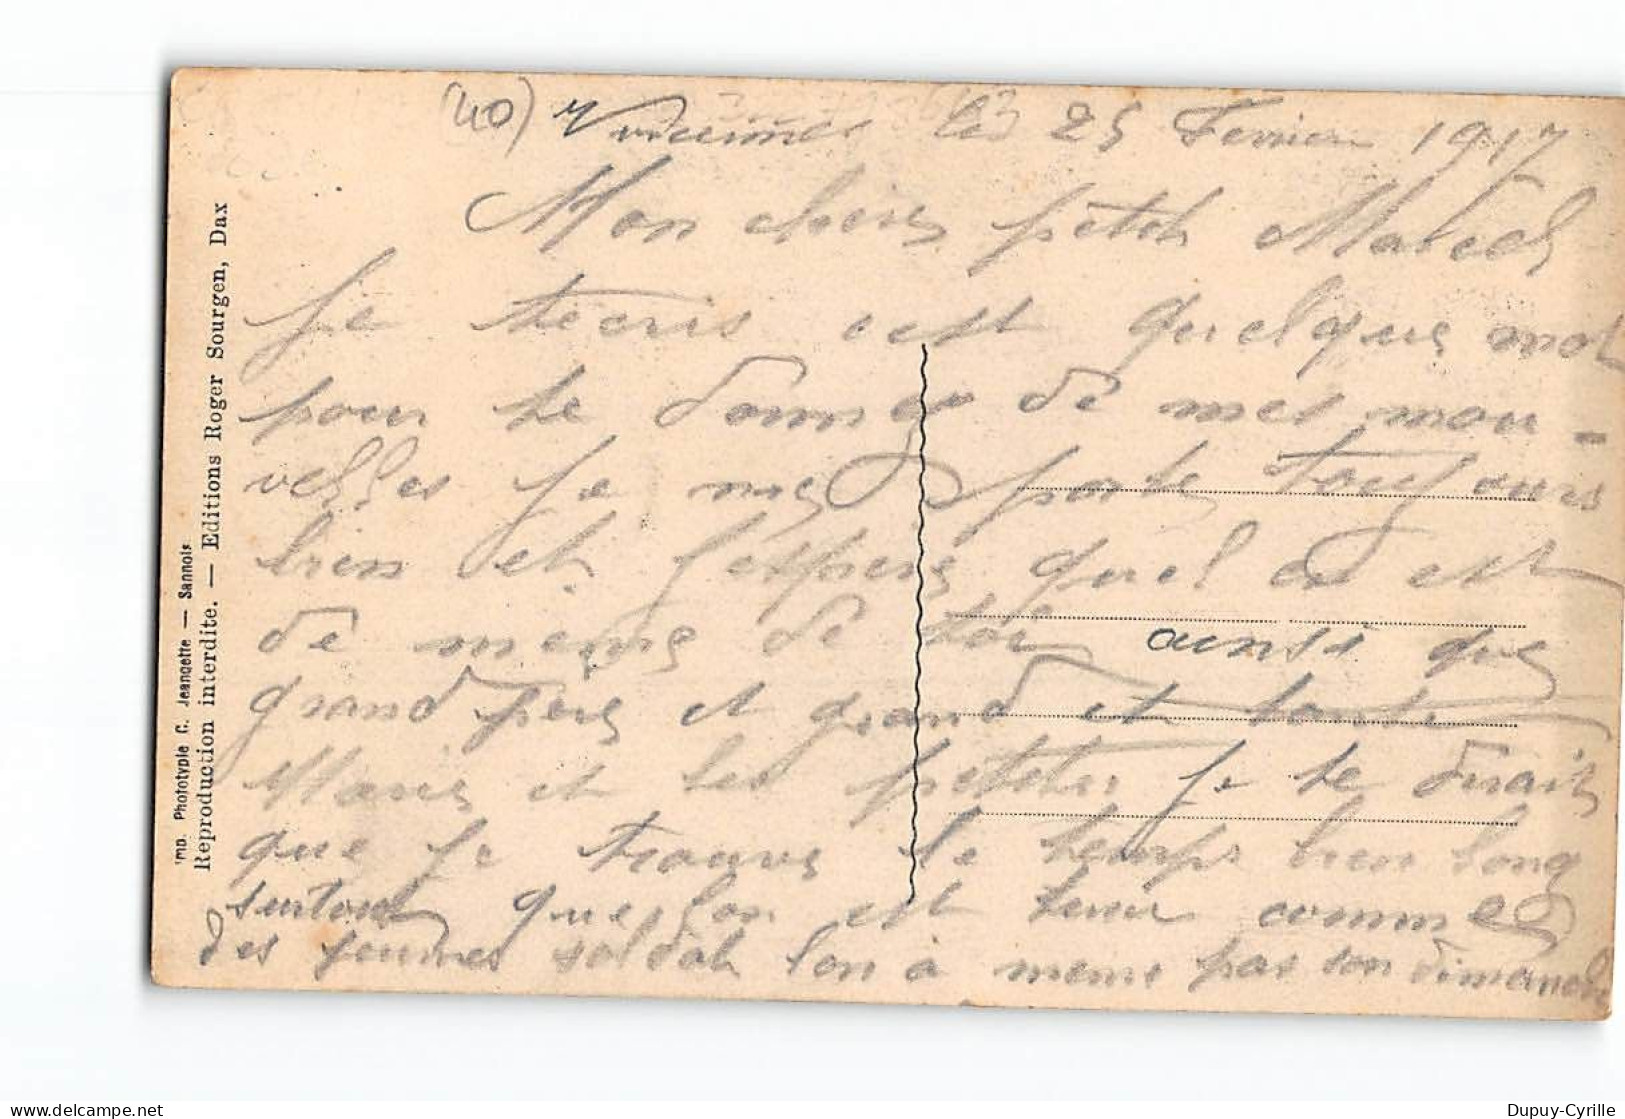 (40) Vincennes le 25 Fevrier 1917
Mon chere petit Marcel
Je técris cest quelque mot
pour te donner de mes nou-
velles je me porte toujours
bien et j'espere quel en est
de meme de toi ainsi que
grand père et grand et tante
Marie et les petites je te dirait
que je trouve le temps bien long
surtout que lon est tenu comme
des jeunes soldat lon à meme pas son dimanche
Imp. Phototypie C. Jeangette — Sannois
Reproduction interdite. — Editions Roger Sourgen, Dax
Dupuy-Cyrille